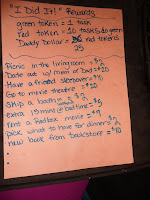 "I Did It!" Rewards
green token = 1 task
red token = 10 tasks, do green
Daddy Dollar = red tokens
25
Picnic in the living room = $2
Date out w/ mom or Dad = $20
Have a friend sleepover = $10
Go to movie theatre = $20
Skip a bath = $2
extra 15 min @ bedtime = $5
Rent a Redbox movie = $7
pick what to have for dinner = $2
new book from bookstore = $10